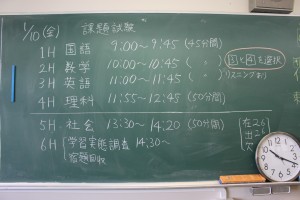 1/10(金) 課題試験
1H 国語 9:00〜9:45 (45分間)
2H 数学 10:00〜10:45 ( 〃 )
を選択
3H 英語 11:00〜11:45 ( 〃 ) リスニングあり
4H 理科 11:55〜12:45 (50分間)
5H 社会 13:30〜14:20 (50分間)
6H 学習実態調査 14:30〜
宿題回収
在26
出26
欠